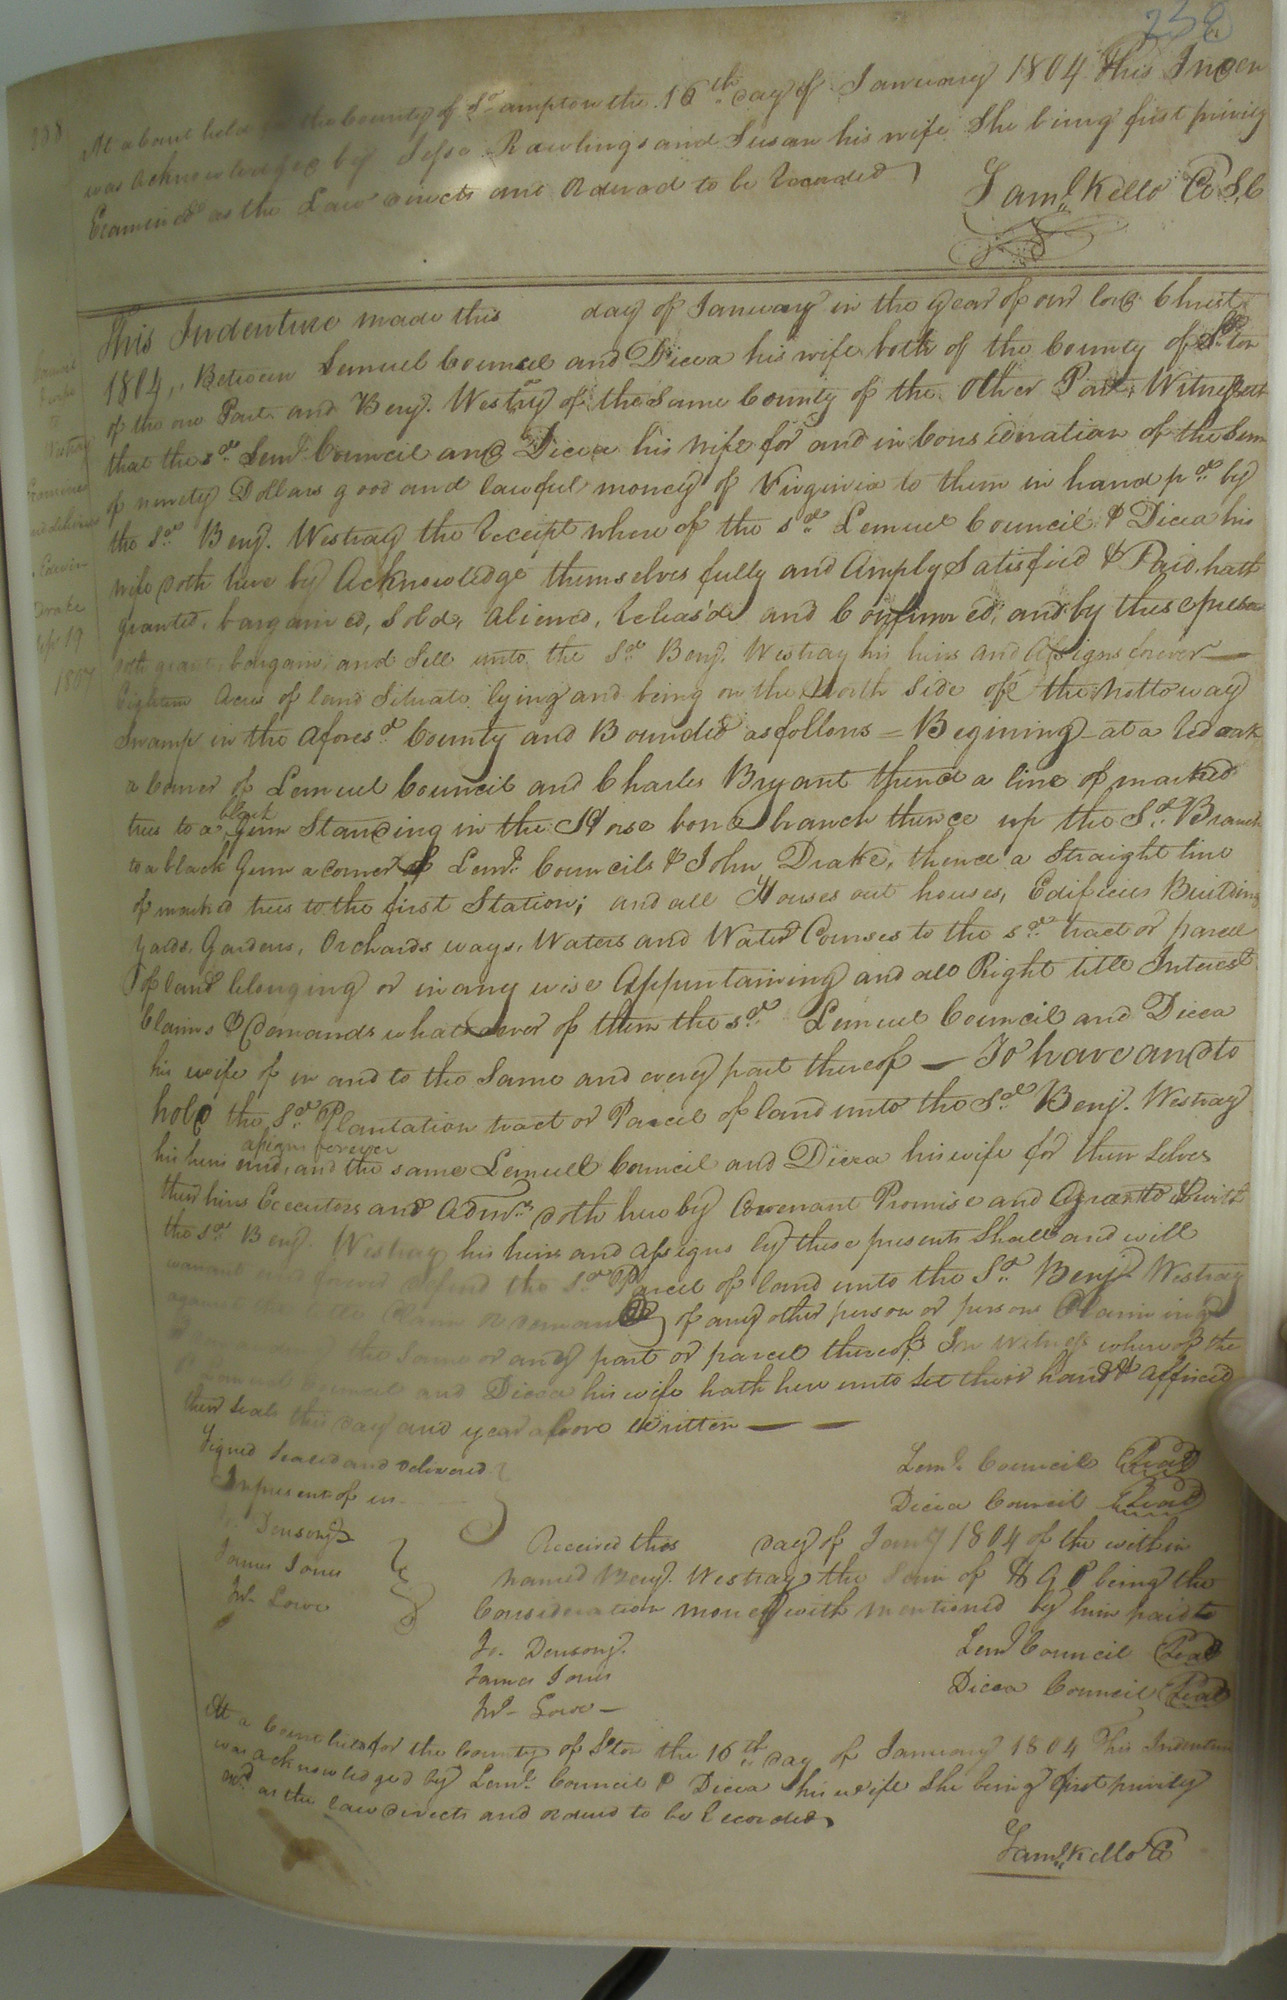 238
238
At a Court held for the County of So.ampton the 16th. day of January 1804 This Inden
was Acknowledged by Jesse Rawlings and Susan his wife She being first privily
Examined as the Law directs and Ordered to be Recorded
Saml. Kello Co S,C
This Indenture made this day of January in the year of our lord Christ
1804,, Between Lemuel Council and Dicea his wife both of the County of S.ton
of the one Part and Benj. Westray of the Same County of the Other Part, Witnesseth
that the sd. Leml. Council and Dicea his Wife for and in Consideration of the Sum
of ninety Dollars good and lawful money of Virginia to them in hand pd. by
the sd. Benj. Westray the Receipt where of the sd. Lemuel Council & Dicea his
wife doth here by Acknowledge themselves fully and Amply Satisfied & Paid, hath
granted, bargained, Sold, aliened, Releas'd and Confirmed, and by these presen
doth grant, bargain, and Sell unto the Sd. Benj. Westray his heirs and Assigns forever —
Eighteen Acres of land Situate lying and being on the North Side of the Nottoway
Swamp in the Aforesd. County and Bounded as follows = Begining at a Red oak
a Corner of Lemuel Council and Charles Bryant thence a line of marked
trees to a black Gum Standing in the Horse bone branch thence up the Sd. Branch
to a black Gum a corner of Leml. Councils & John Drake, thence a Straight line
of marked trees to the first Station; and all Houses out houses, Edificies Building
yards, Gardens, Orchards ways, Waters and Water Courses to the sd. tract or parcel
of land belonging or in any wise Appurtaining and all Right title Interest
Claims & Demands whatsoever of them the sd. Lemuel Council and Dicea
his wife of in and to the Same and every part thereof — To have and to
hold the Sd. Plantation tract or Parcel of land unto the Sd. Benj. Westray
his heirs and assigns forever, and the same Lemuell Council and Dicea his wife for them selves
their heirs Executors and Admrs. doth here by Covenant Promise and Agree to & with
the sd. Benj. Westray his heirs and Assigns by these presents Shall and will
warrant and forever defend the Sd. Parcel of land unto the Sd. Benj. Westray
against the title Claim or demand of any other person or persons Claiming
the Same or any part or parcel thereof, In witness whereof the
Lemuel Council and Dicea his wife hath here unto Set their hand & affixed
their Seals this day and year above Written — —
Signed Sealed and delivered
In presents of us
Jo. Denson Jr.
James Jones
Wm. Lowe
Leml. Council Seal
Dicea Council Seal
Received this day of Jany 1804 of the within
named Benj. Westray the Sum of $90 being the
Consideration money with mentioned by him paid to
Jo. Denson Jr.
James Jones
Wm. Lowe —
Leml Council Seal
Dicea Council Seal
At a Court held for the County of S.ton the 16th. day of January 1804 This Indenture
was acknowledged by Leml. Council & Dicea his wife She being first privily
Exd. as the law directs and Ordered to be Recorded
Saml. Kello C
to
Westray
Examined
Drake
Sept 19
1807